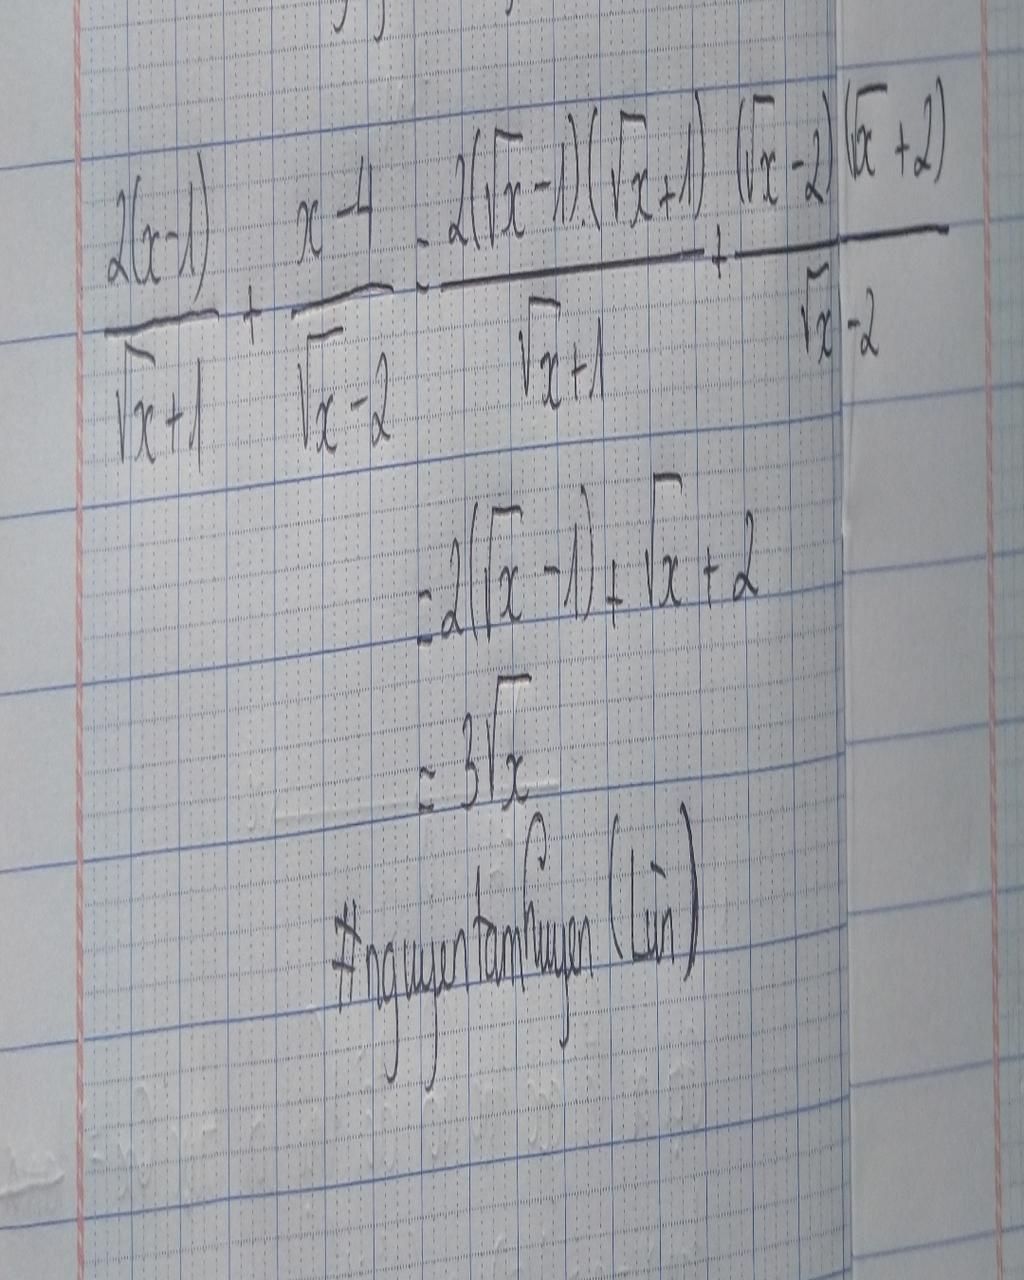 2(x-1)/(√x+1) + (x-4)/(√x-2) = 2(√x-1).(√x+1)/(√x+1) + (√x-2)(√x+2)/(√x-2)
= 2(√x-1) + √x + 2
= 3√x
#nguyentamhuyen (Lùn)